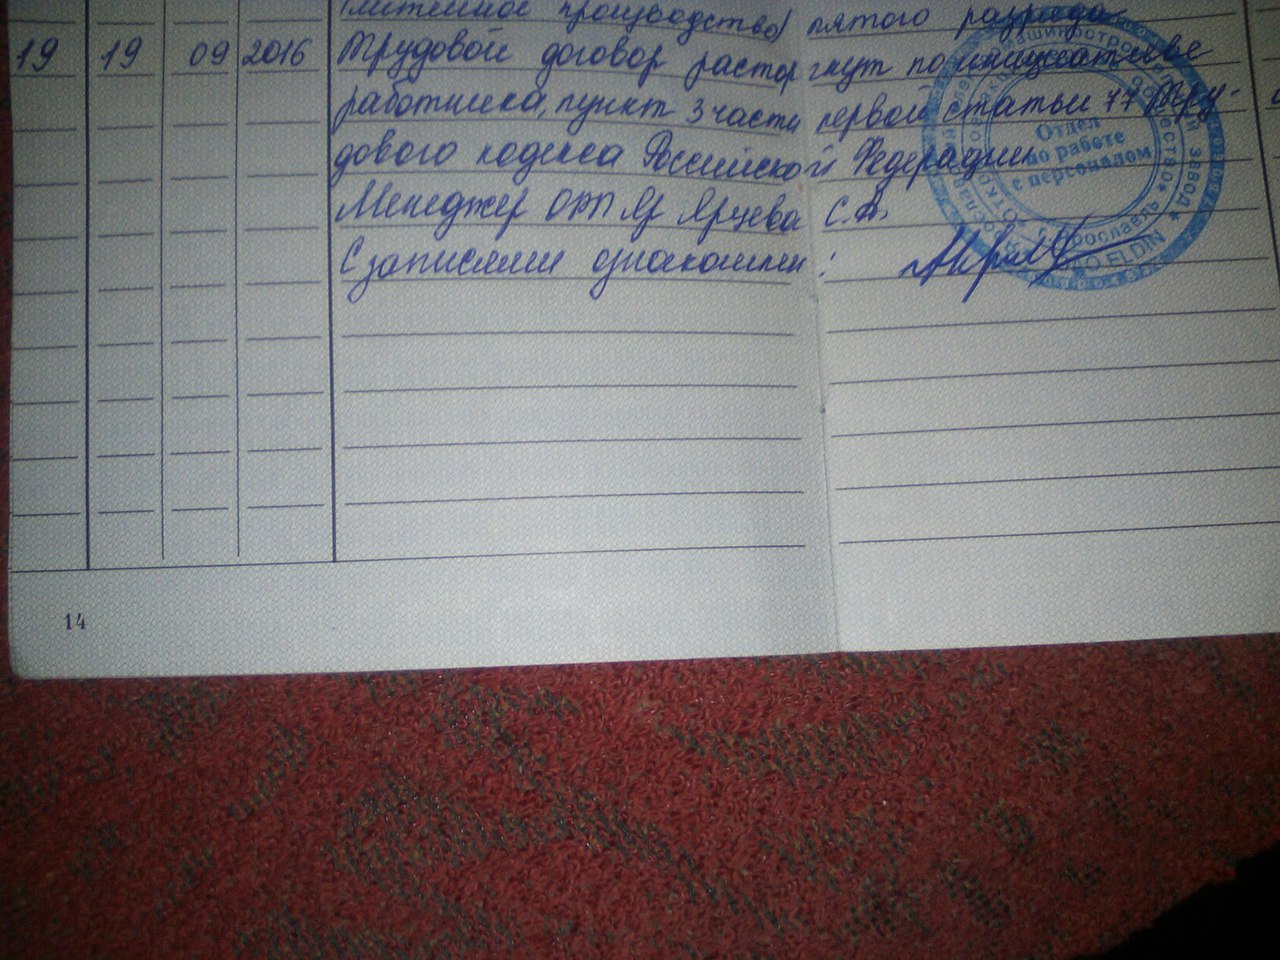 (литейное производство) пятого разряда
19 19 09 2016 Трудовой договор расторгнут по инициативе
работника, пункт 3 части первой статьи 77 Тру-
дового кодекса Российской Федерации
Менеджер ОРП Яр Ярцева С.А.
С записями ознакомлен:
Отдел
по работе
с персоналом
14